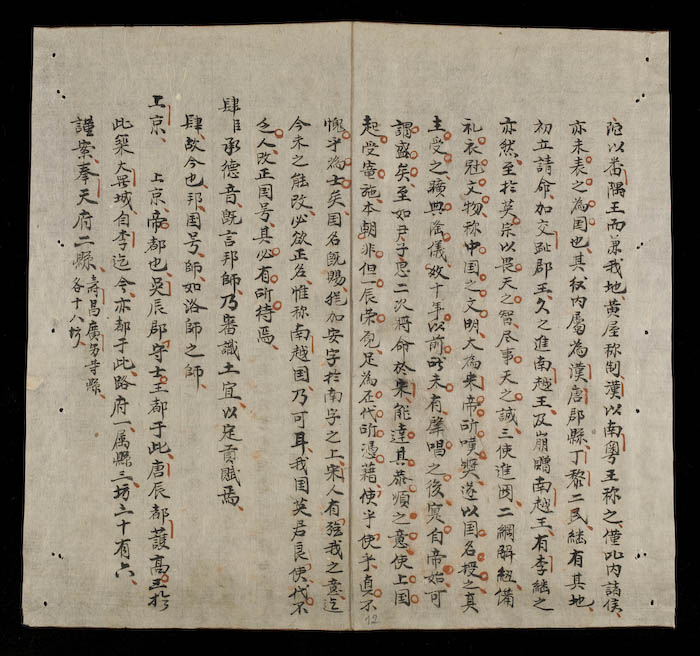 陀以番隅王而兼我地黃屋称制漢以南粵王称之僅比內諸侯
亦未表之為国也其後內屬為漢唐郡縣丁黎二氏継有其地
初立請命加交趾郡王久之進南越王及崩贈南越王有李継之
亦然至於英宗以畏天之智尽事天之誠三使進二綱解紐備
礼衣冠文物称中国之文明大為宋帝所嘆奬遂以国名授之其
主受之曠典隆儀數十年以前所未有肇唱之後寔自帝始可
謂盛矣至如尹子思二次将命於宋能達其恭順之意使上国
起受寵施本朝非但一辰荣观足為丕代所憑藉使乎使乎真不
愧乎為士矣国名既賜加安字於南字之上宋人有弱我之意迄
今未之能改必欲正名惟称南越国乃可耳我国英君良使代不
乏人改正国号其必有所待焉
肆臣承德音既言邦師乃審識土宜以定貢賦焉
肆故今也邦国号師如洛師之師
上京 上京帝都也吳辰郡守士王都于此唐辰都護高王於
此築大羅城自李迄今亦都于此路府一属縣三坊三十有六
謹案奉天府二縣 寿昌廣等縣
各十八坊
12